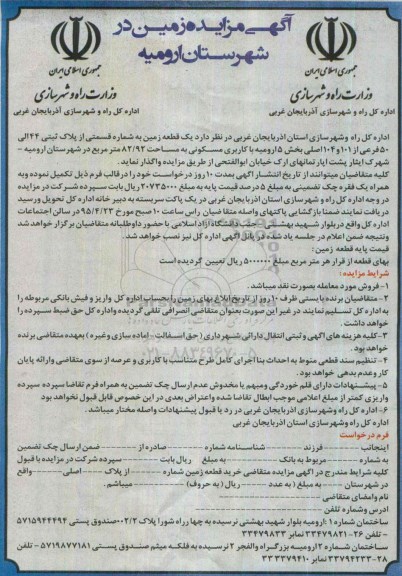 آگهی مزایده زمین در
شهرستان ارومیه
جمهوری اسلامی ایران
وزارت راه و شهرسازی
اداره کل راه و شهرسازی آذربایجان غربی
جمهوری اسلامی ایران
وزارت راه و شهرسازی
اداره کل راه و شهرسازی آذربایجان غربی
اداره کل راه وشهرسازی استان اذربایجان غربی در نظر دارد یک قطعه زمین به شماره قسمتی از پلاک ثبتی ۴۴الی
۵۰فرعی از ۱۰۱و۱۰۴اصلی بخش ۵ارومیه با کاربری مسکونی به مساحت ۸۲/۹۲ متر مربع در شهرستان ارومیه -
شهرک ایثار پشت اپارتمانهای ارک خیابان ابوالفتحی از طریق مزایده واگذار نماید.
کلیه متقاضیان میتوانند از تاریخ انتشار اگهی بمدت ۱۰روز درخواست خود را درقالب فرم ذیل تکمیل نموده وبه
همراه یک فقره چک تضمینی به مبلغ ۵ درصد قیمت پایه به مبلغ ۲۰۷۳۵۰۰۰ ریال بابت سپرده شرکت در مزایده
در وجه اداره کل راه و شهرسازی استان اذربایجان غربی در یک پاکت سربسته به دبیر خانه اداره کل تحویل ورسید
دریافت نمایند ضمنا بازگشایی پاکتهای واصله متقاضیان راس ساعت ۱۰ صبح مورخ ۹۵/۴/۲۲ در سالن اجتماعات
اداره کل واقع در بلوار شهید بهشتی - جنب دانشگاه ازاد اسلامی با حضور داوطلبانه متقاضیان برگزار خواهد شد
ونتیجه ضمن اعلام در جلسه یاد شده در پانل آگهی اداره کل نیز نصب خواهد شد.
قیمت پایه قطعه زمین:
بهای قطعه از قرار هر متر مربع مبلغ ۵۰۰۰۰۰۰ ریال تعیین گردیده است
شرایط مزایده :
۱- فروش مورد معامله بصورت نقد میباشد.
۲- متقاضیان برنده بایستی ظرف ۱۰ روز از تاریخ ابلاغ بهای زمین را بحساب اداره کل واریز و فیش بانکی مربوطه را
به اداره کل تسلیم نمایند در غیر این صورت بعنوان متقاضی انصرافی تلقی گردیده واداره کل حق ضبط سپرده را
خواهد داشت.
۳- کلیه هزینه های اگهی و ثبتی انتقال دارائی شهرداری (حق اسفالت - اماده سازی و غیره) بعهده متقاضی برنده
خواهد بود.
۴- تنظیم سند قطعی منوط به احداث بنا اجرای کامل طرح متناسب با کاربری و عرصه از سوی متقاضی وارائه پایان
کار وعدم بدهی خواهد بود.
۵- پیشنهادات دارای قلم خوردگی ومبهم یا مخدوش عدم ارسال چک تضمین به همراه فرم تقاضا سپرده سپرده
واریزی کمتر از مبلغ اعلامی موجب ابطال تقاضا شده واعتراض بعدی در این خصوص قابل قبول نخواهد بود
۶- اداره کل راه وشهرسازی اذربایجان غربی در رد یا قبول پیشنهادات واصله مختار میباشد.
اداره کل راه وشهرسازی استان اذربایجان غربی
فرم درخواست
اینجانب ---------- فرزند ---------- شناسنامه شماره ---------- صادره از ---------- ضمن ارسال چک تضمین
به شماره ---------- مربوط به بانک ---------- به مبلغ ---------- ریال بابت ---------- سپرده شرکت در مزایده با قبول
کلیه شرایط مندرج در اگهی مزایده متقاضی خرید قطعه زمین شماره ---------- از پلاک ---------- اصلی ---------- واقع
در شهرستان ---------- به مبلغ (به عدد ---------- ریال (به حروف) ---------- میباشم.
نام وامضای متقاضی ----------
ادرس وشماره تلفن
ساختمان شماره ۱:ارومیه بلوار شهید بهشتی نرسیده به چهار راه شورا پلاک ۲/۰۰۲صندوق پستی ۵۷۱۵۹۴۴۴۹۴
- تلفن ۲۶-۳۳۴۷۹۸۲۱ نمابر ۳۳۴۷۹۸۳۳
ساختمان شماره ۲ارومیه بزرگراه والفجر ۲نرسیده به فلکه میثم صندوق پستی ۵۷۱۹۸۷۷۱۸۱ - تلفن
۲۸-۳۳۷۹۴۲۳۳ نمابر ۳۳۳۷۹۴۱۰